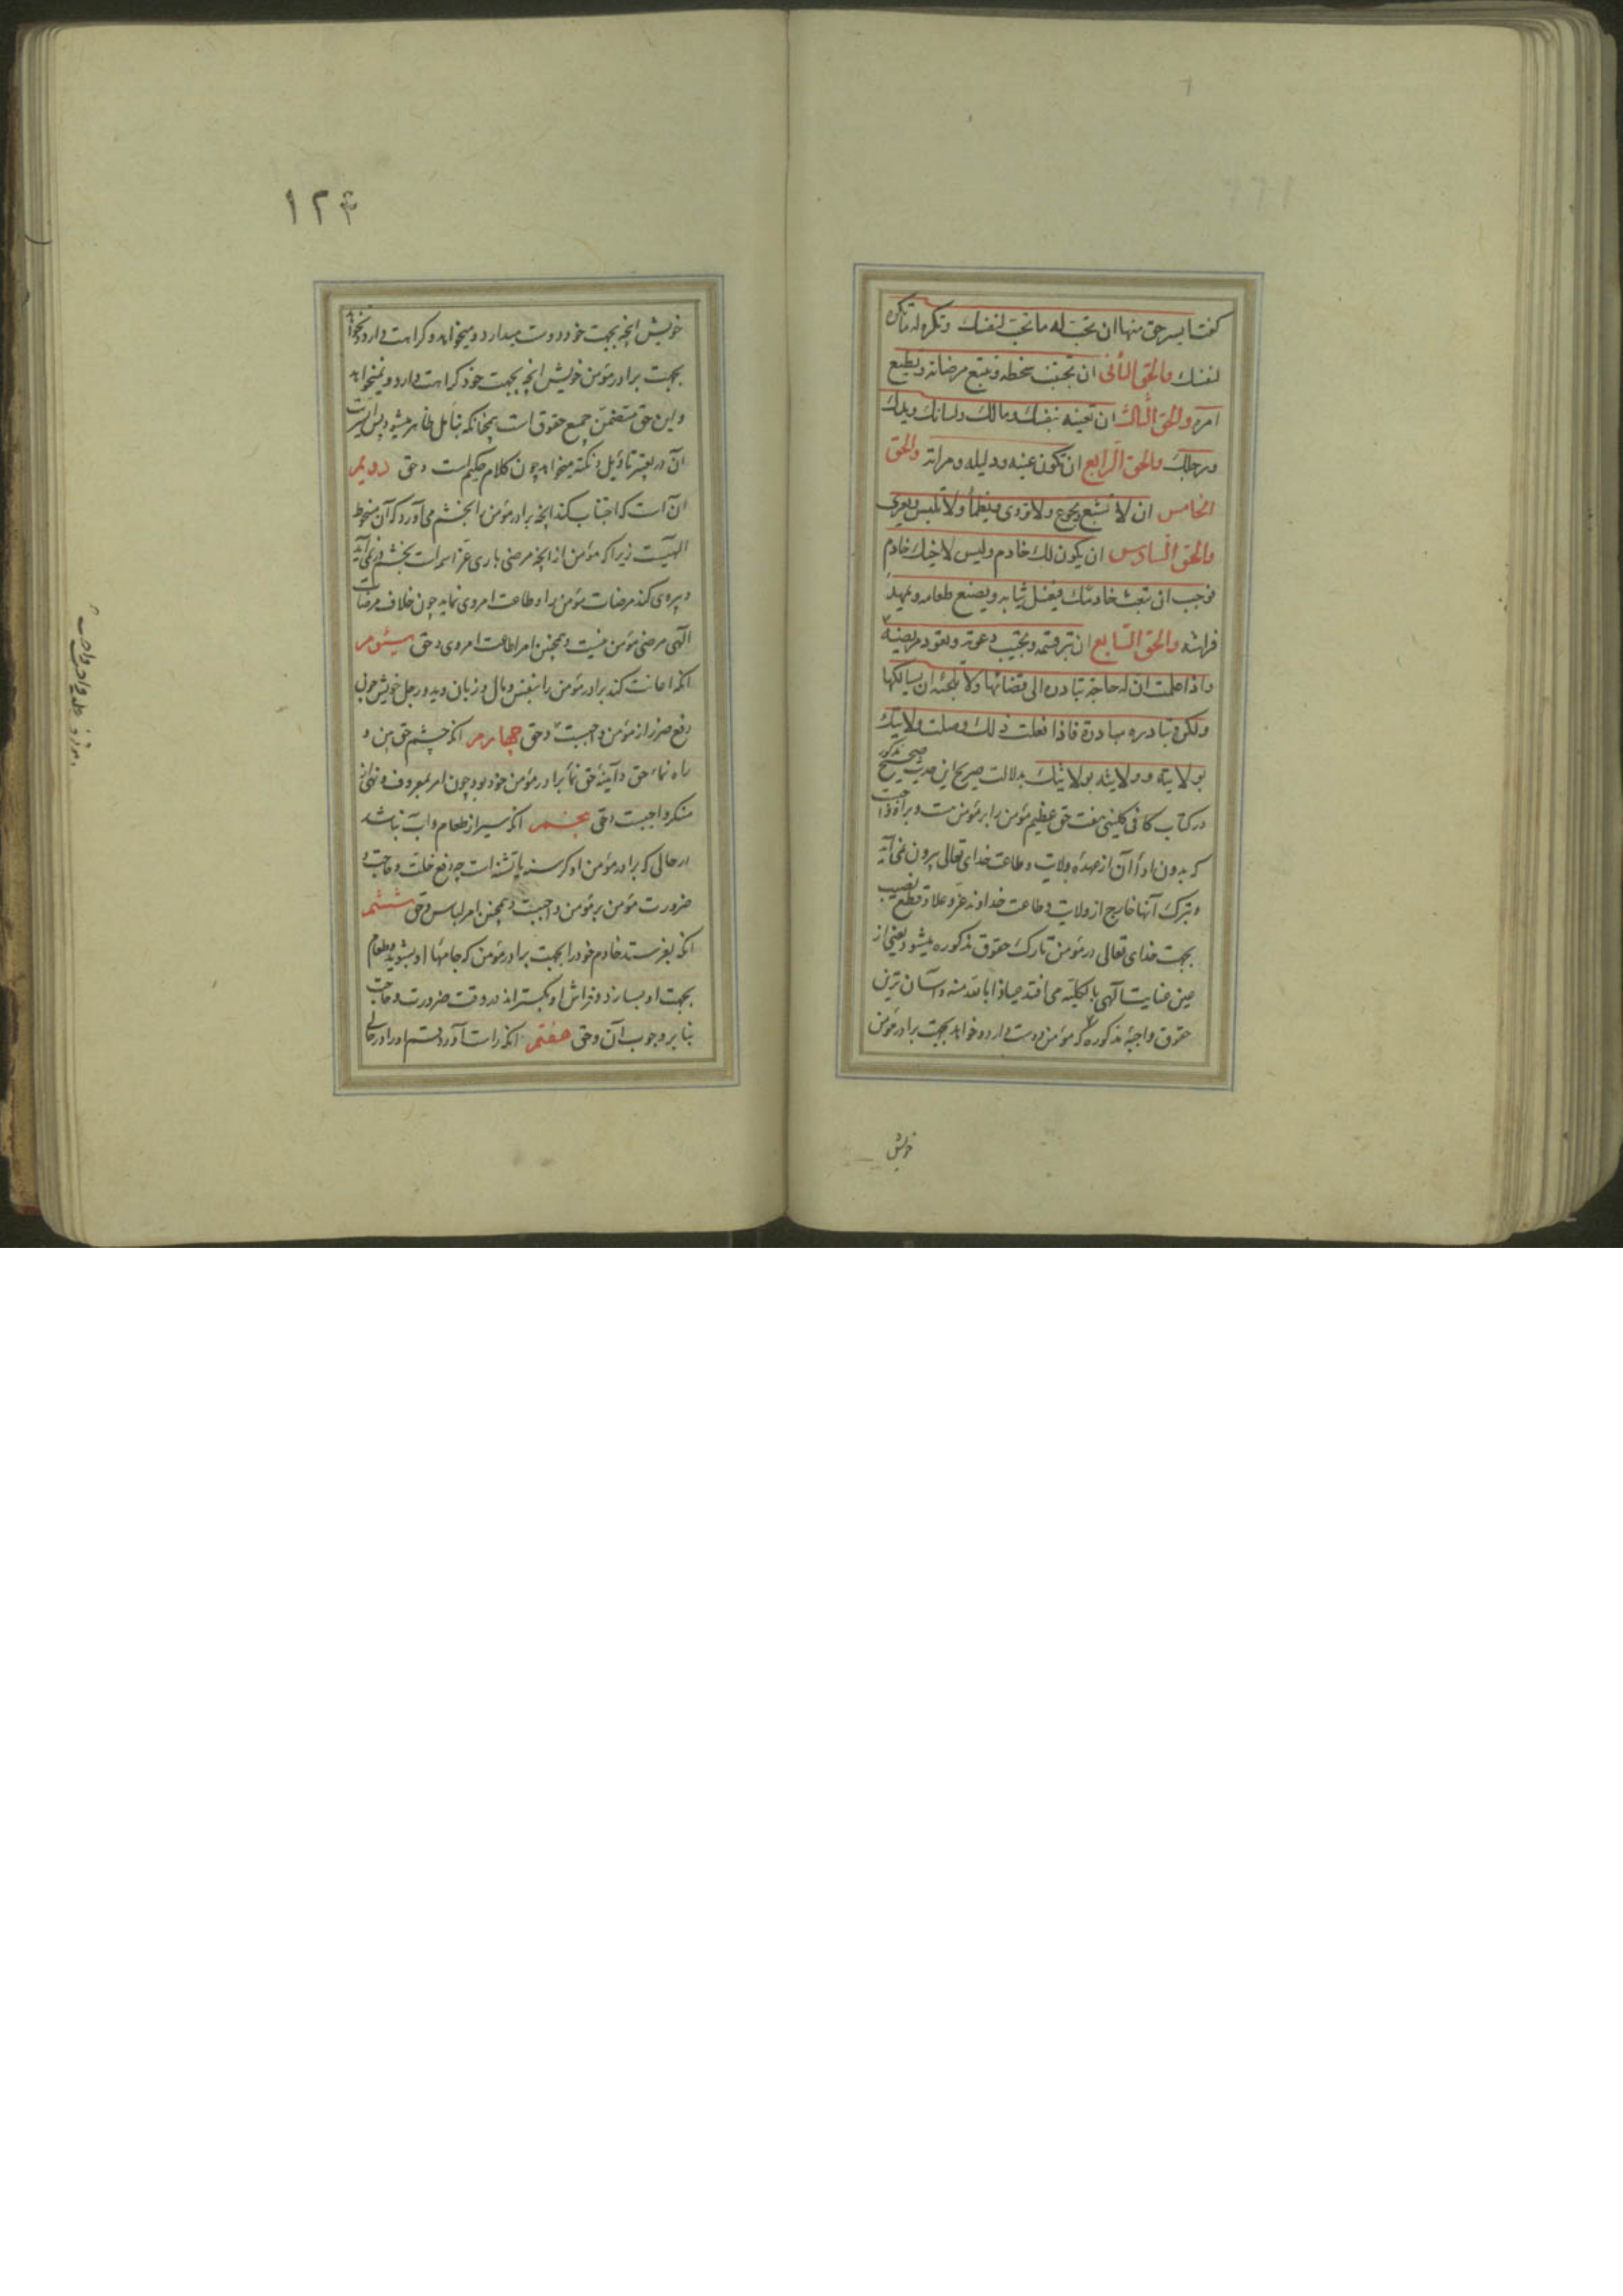 کفت ایسر حق منها ان تحب له ما تحب لنفسك و تکره له ما تکره
لنفسك والحق الثانی ان تجتنب سخطه و تتبع مرضاته و تطیع
امره والحق الثالث ان تعینه بنفسك و مالك و لسانك و یدك
و رجلك والحق الرابع ان تکون عینه و دلیله و مراته والحق
الخامس ان لا تشبع و یجوع و لا تروی و یظمأ و لا تلبس و یعری
والحق السادس ان یکون لك خادم و لیس لاخیك خادم
فوجب ان تبعث خادمك فیغسل ثیابه و یصنع طعامه و یمهد
فراشه والحق السابع ان تبر قسمه و تجیب دعوته و تعود مریضه
و اذا علمت ان له حاجة تبادره الی قضائها و لا تلجئه ان یسألکها
ولکن تبادره مبادرة فاذا فعلت ذلك وصلت ولایتك
بولایته و ولایته بولایتك بدلالت صریح این حدیث صحیح مذکور
در کتاب کافی کلینی هفت حق عظیم مؤمن را بر مؤمن هست و براو واجب
که بدون اداأ آن از عهدۀ ولایت و طاعت خدای تعالی بیرون نمی آید
و بترک آنها خارج از ولایت و طاعت خداوند عز و علا و قطع نصیب
بجهت خدای تعالی در مؤمن تارک حقوق مذکوره میشود یعنی از
عین عنایت آلهی بالکلیه می افتد عیاذا بالله منه و آسان ترین
حقوق واجبۀ مذکوره که مؤمن دوست دارد و خواهد بجهت برادر مؤمن
خویش
۱۲۴
خویش انچه بجهت خود دوست میدارد و میخواهد و کراهت دارد و نخواهد
بجهت برادر مؤمن خویش انچه بجهت خود کراهت دارد و نمیخواهد
و این حق متضمن جمیع حقوق است چنانکه بتأمل ظاهر میشود پس ایسریت
آن در یعتبر تاویل و نکته میخواهد چون کلام حکیم است و حق دویم
ان است که اجتناب کند انچه برادر مؤمن را بخشم می آورد که آن مسخوط
الهیست زیرا که مؤمن از انچه مرضی باری عز اسمه است بخشم در نمی آید
و پیروی کند مرضات مؤمن را و طاعت امر وی نماید چون خلاف مرضات
الهی مرضی مؤمن نیست و همچنین امر اطاعت امر وی و حق سیوم
انکه اعانت کند برادر مؤمن را بنفس و مال و زبان و ید و رجل خویش چون
رفع ضرر از مؤمن واجبست و حق چهارم انکه چشم حق بین و
راه نماء حق و آینۀ حق نماء برادر مؤمن خود بود چون امر بمعروف و نهی از
منکر واجبست و حق پنجم انکه سیر از طعام و آب نباشد
در حالی که برادر مؤمن او کرسنه یا تشنه است چه دفع خلت و حاجت و
ضرورت مؤمن بر مؤمن واجبست و همچنین امر لباس و حق ششم
انکه بفرستد خادم خود را بجهت برادر مؤمن که جامهاء او بشوید و طعام
بجهت او بسازد و فراش او بکستراند در وقت ضرورت و حاجت
بنا بر وجوب آن و حق هفتم انکه راست آورد قسم او را در حالی